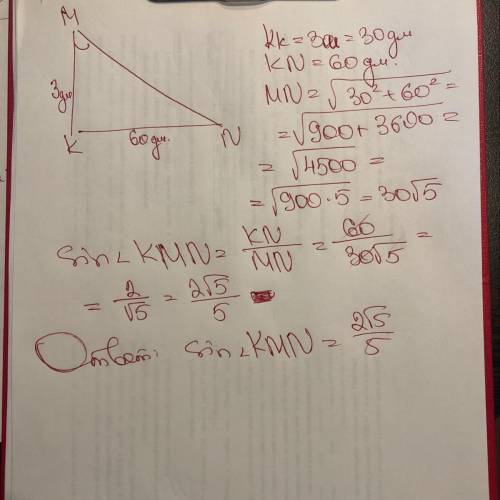 M
3дм
K
60дм.
N
KK = 3м = 30дм
KN = 60дм.
MN = √30² + 60² =
= √900 + 3600 =
= √4500 =
= √900 · 5 = 30√5
sin ∠ KMN = KN/MN = 60/30√5 =
= 2/√5 = 2√5/5
Ответ: sin ∠KMN = 2√5/5